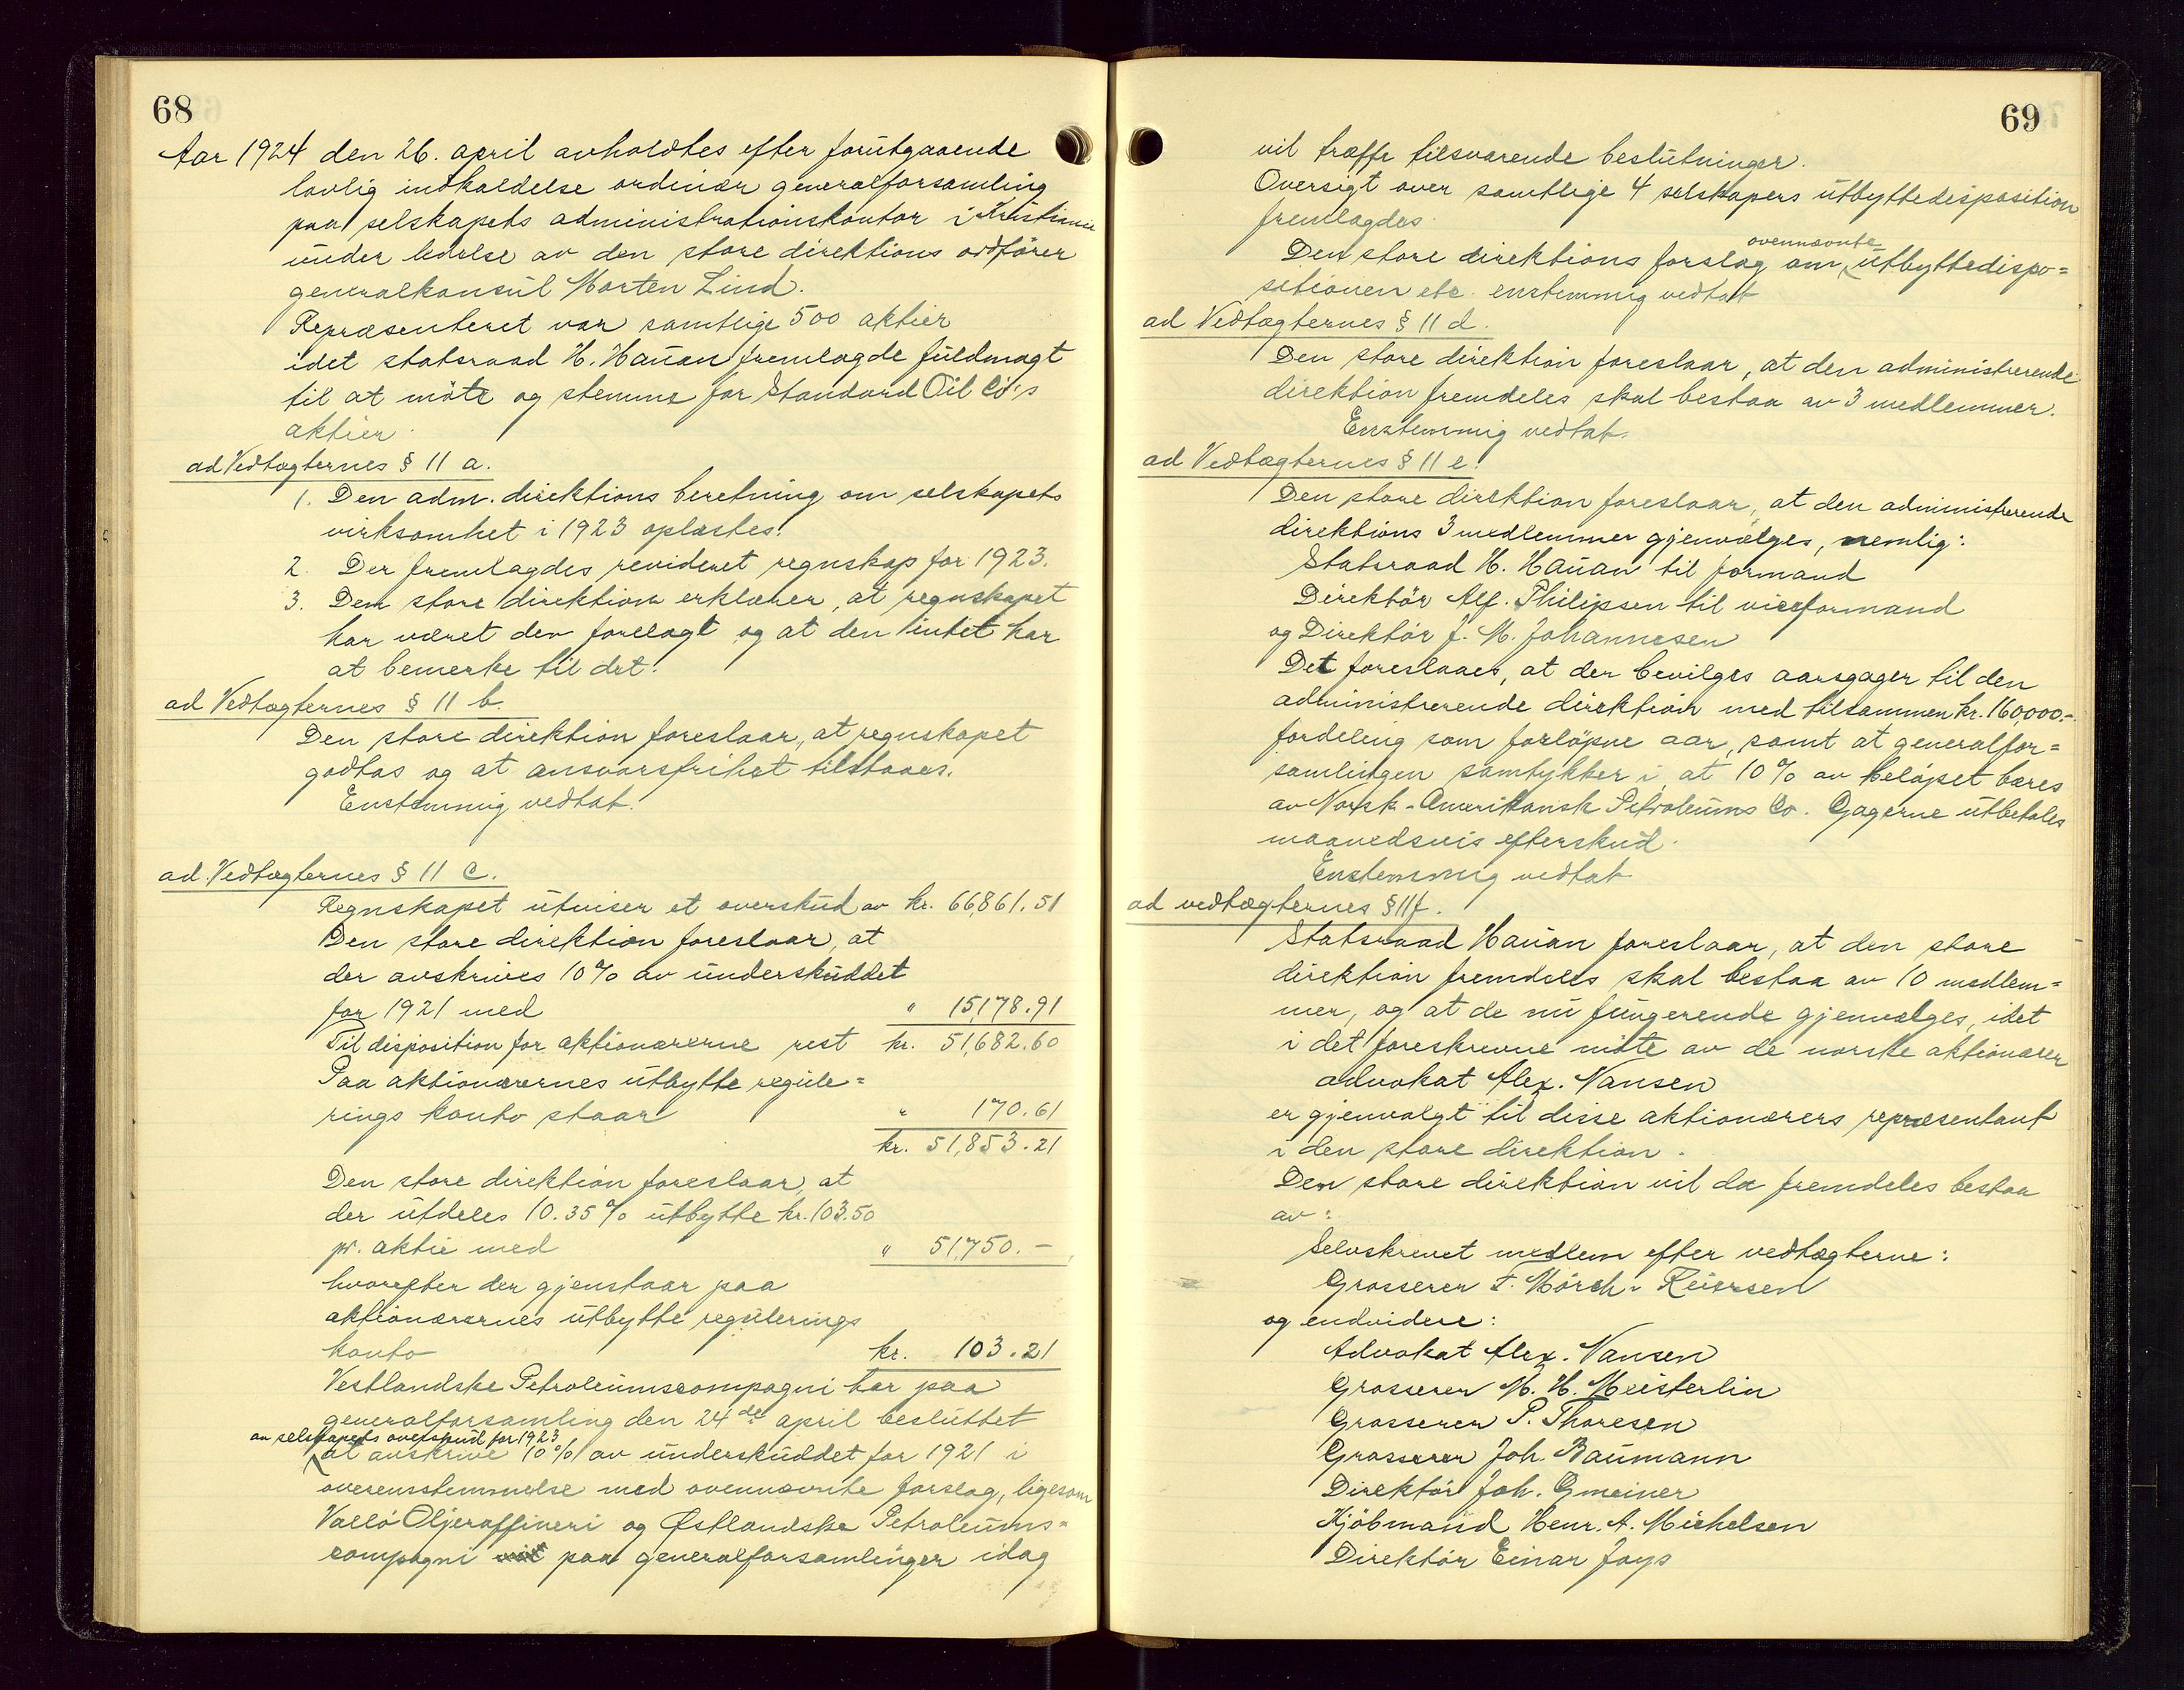 68
Aar 1924 den 26. april avholdtes efter forutgaaende
lovlig indkaldelse ordinær generalforsamling
paa selskapets administrationskontor i Kristiania
under ledelse av den store direktions ordfører
generalkonsul Morten Lind.
Repræsenteret var samtlige 500 aktier
idet statsraad H. Hauan fremlagde fuldmagt
til at møte og stemme for Standard Oil Co's
aktier.
ad Vedtægternes § 11 a.
1. Den adm. direktions beretning om selskapets
virksomhet i 1923 oplæstes.
2. Der fremlagdes revideret regnskap for 1923.
3. Den store direktion erklærer, at regnskapet
har været den forelagt og at den intet har
at bemerke til det.
ad Vedtægternes § 11 b.
Den store direktion foreslaar, at regnskapet
godtas og at ansvarsfrihet tilstaaes.
Enstemmig vedtat.
ad Vedtægternes § 11 c.
Regnskapet utviser et overskud av kr. 66,861.51
Den store direktion foreslaar, at
der avskrives 10% av underskuddet
for 1921 med " 15,178.91
Til disposition for aktionærerne rest kr. 51,682.60
Paa aktionærernes utbytte regule=
rings konto staar " 170.61
kr. 51,853.21
Den store direktion foreslaar, at
der utdeles 10.35% utbytte kr. 103.50
pr. aktie med " 51,750.-
hvorefter der gjenstaar paa
aktionærernes utbytte regulerings
konto kr. 103.21
Vestlandske Petroleumscompagni har paa
generalforsamling den 24de april besluttet
av selskapets overskud for 1923
at avskrive 10% av underskuddet for 1921 i
overensstemmelse med ovennævnte forslag, ligesom
Vallö Oljeraffineri og Østlandske Petroleums=
compagni paa generalforsamlinger idag
69
vil træffe tilsvarende beslutninger.
Oversigt over samtlige 4 selskapers utbyttedisposition
fremlagdes.
ovennævnte
Den store direktions forslag om utbyttedispo=
sitionen etc. enstemmig vedtat
ad Vedtægternes § 11 d.
Den store direktion foreslaar, at den administrerende
direktion fremdeles skal bestaa av 3 medlemmer.
Enstemmig vedtat.
ad Vedtægternes § 11 e.
Den store direktion foreslaar, at den administrerende
direktions 3 medlemmer gjenvælges, nemlig:
Statsraad H. Hauan til formand
Direktör Alf. Philipsen til viceformand
og Direktör J. M. Johannesen
Det foreslaaes, at der bevilges aarsgager til den
administrerende direktion med tilsammen kr. 160,000.-
fordeling som forløpne aar, samt at generalfor=
samlingen samtykker i, at 10% av beløpet bæres
av Norsk-Amerikansk Petroleums Co. Gagerne utbetales
maanedsvis efterskud.
Enstemmig vedtat
ad vedtægternes § 11 f.
Statsraad Hauan foreslaar, at den store
direktion fremdeles skal bestaa av 10 medlem=
mer, og at de nu fungerende gjenvælges, idet
i det foreskrevne møte av de norske aktionærer
advokat Alex. Nansen
er gjenvalgt til disse aktionærers repræsentant
i den store direktion.
Den store direktion vil da fremdeles bestaa
av:
Selvskrevet medlem efter vedtægterne:
Grosserer F. Mørch-Reiersen
og endvidere:
Advokat Alex. Nansen
Grosserer M. H. Meisterlin
Grosserer P. Thoresen
Grosserer Joh. Baumann
Direktör Joh. Gmeiner
Kjöbmand Henr. A. Michelsen
Direktör Einar Joys